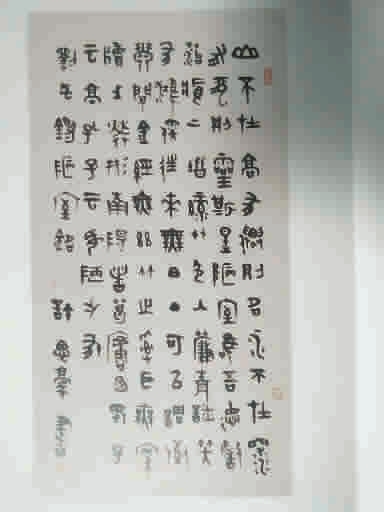 山不在高有仙則名水不在深
有龍則靈斯是陋室惟吾德馨
苔痕上階綠草色入簾青談笑
有鴻儒往來無白丁可以調素
琴閱金經無絲竹之亂耳無案
牘之勞形南陽諸葛廬西蜀子
云亭孔子云何陋之有
劉禹錫陋室銘